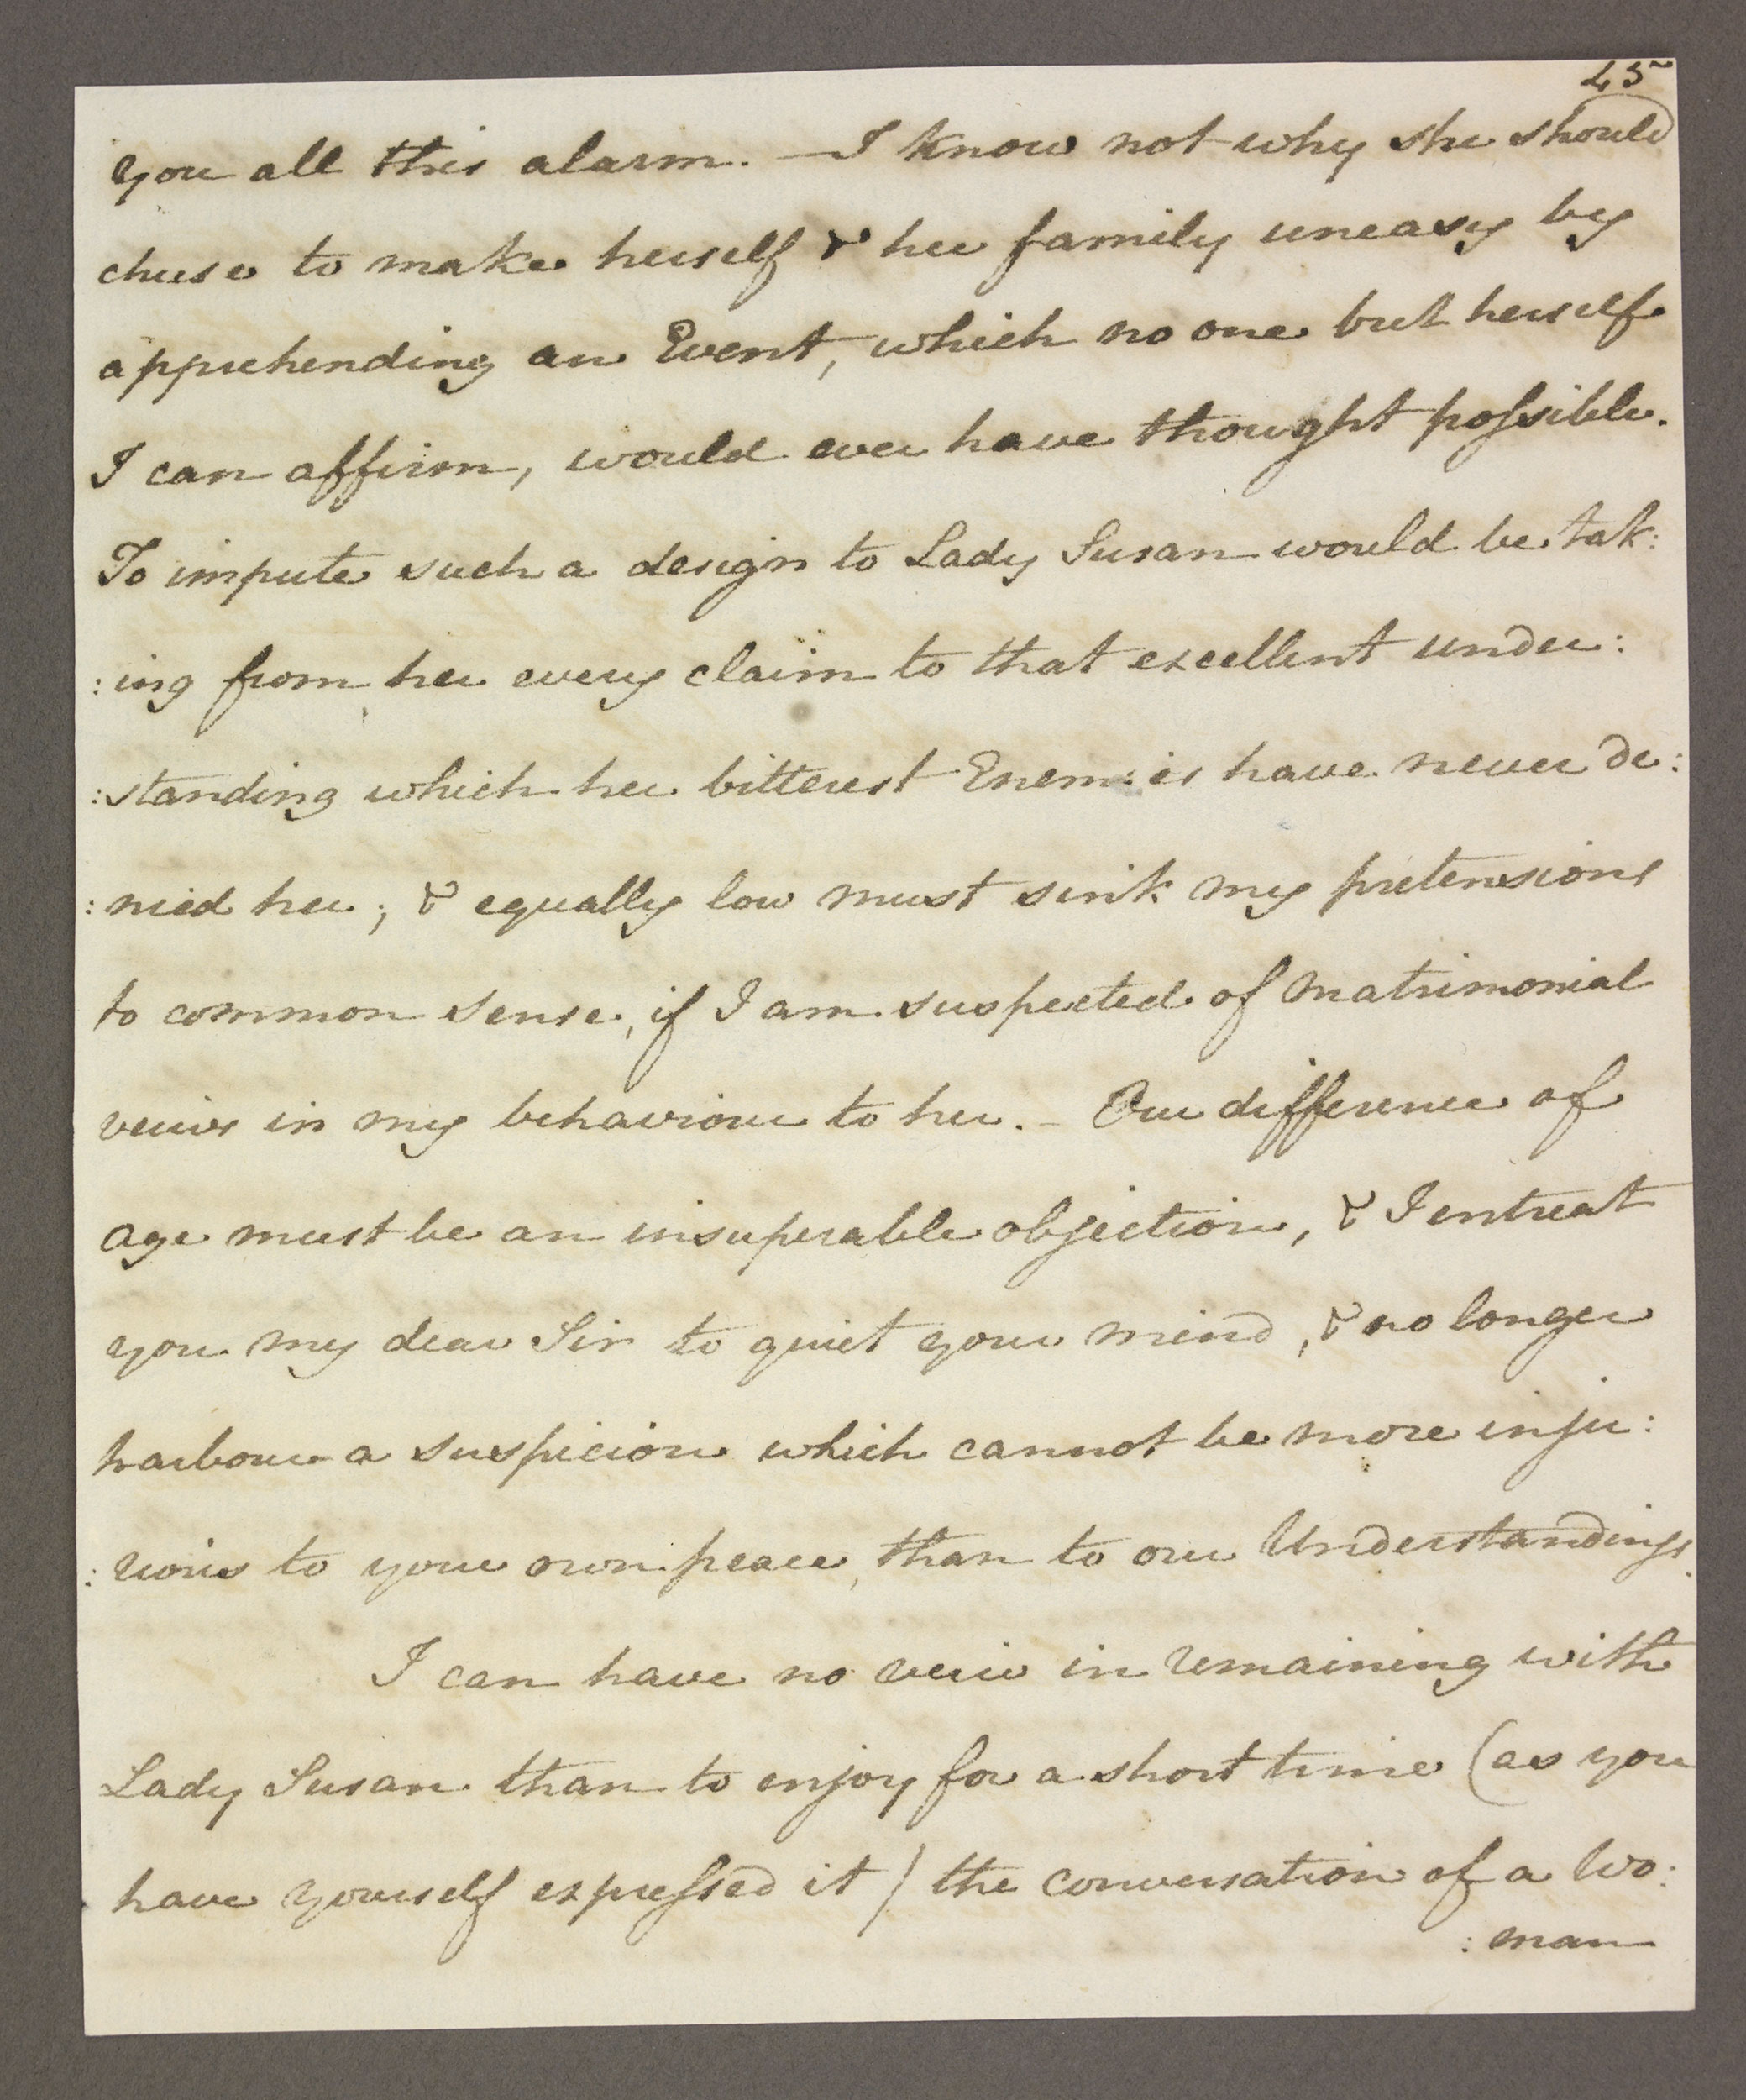 45
you all this alarm. — I know not why she should
chuse to make herself & her family uneasy by
apprehending an Event, which no one but herself
I can affirm, would ever have thought possible.
To impute such a design to Lady Susan would be tak:
:ing from her every claim to that excellent under:
:standing which her bitterest Enemies have never de:
:nied her; & equally low must sink my pretensions
to common sense, if I am suspected of matrimonial
veiws in my behaviour to her. – Our difference of
age must be an insuperable objection, & I entreat
you my dear Sir to quiet your mind, & no longer
harbour a suspicion which cannot be more inju:
:rious to your own peace, than to our Understandings.
I can have no veiw in remaining with
Lady Susan than to enjoy for a short time (as you
have yourself expressed it) the conversation of a Wo:
:man